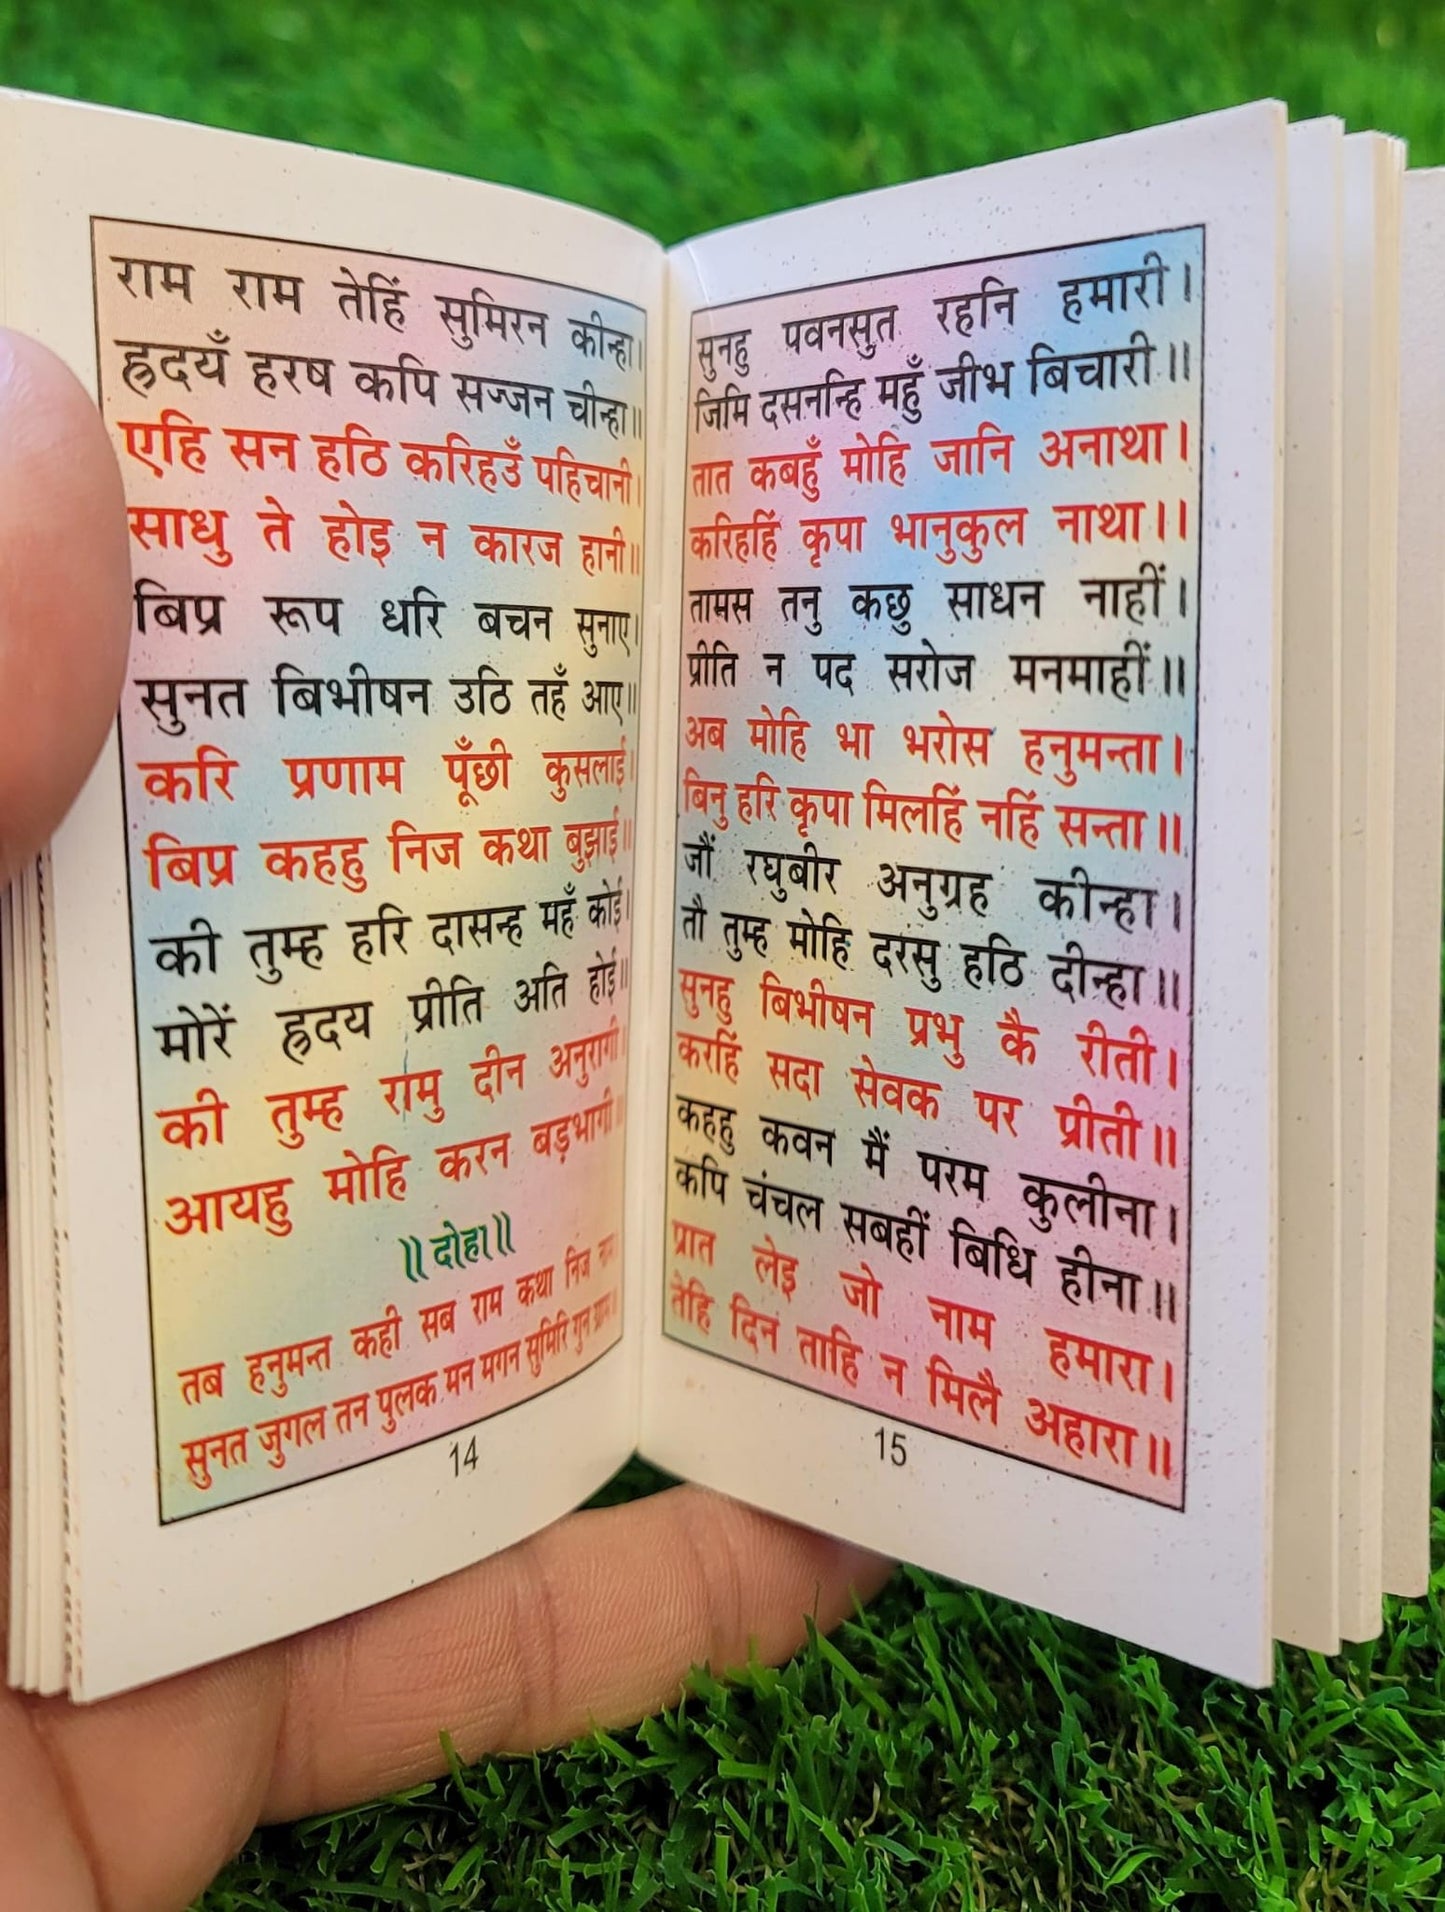 राम राम तेहिं सुमिरन कीन्हा।
ह्रदयँ हरष कपि सज्जन चीन्हा॥
एहि सन हठि करिहउँ पहिचानी।
साधु ते होइ न कारज हानी॥
बिप्र रूप धरि बचन सुनाए।
सुनत बिभीषन उठि तहँ आए॥
करि प्रणाम पूँछी कुसलाई।
बिप्र कहहु निज कथा बुझाई॥
की तुम्ह हरि दासन्ह महँ कोई।
मोरें ह्रदय प्रीति अति होई॥
की तुम्ह रामु दीन अनुरागी।
आयहु मोहि करन बड़भागी॥
॥ दोहा ॥
तब हनुमन्त कही सब राम कथा निज नाम।
सुनत जुगल तन पुलक मन मगन सुमिरि गुन ग्राम॥
14
सुनहु पवनसुत रहनि हमारी।
जिमि दसनन्हि महुँ जीभ बिचारी॥
तात कबहुँ मोहि जानि अनाथा।
करिहहिं कृपा भानुकुल नाथा।।
तामस तनु कछु साधन नाहीं।
प्रीति न पद सरोज मनमाहीं॥
अब मोहि भा भरोस हनुमन्ता।
बिनु हरि कृपा मिलहिं नहिं सन्ता॥
जौं रघुबीर अनुग्रह कीन्हा।
तौ तुम्ह मोहि दरसु हठि दीन्हा॥
सुनहु बिभीषन प्रभु कै रीती।
करहिं सदा सेवक पर प्रीती॥
कहहु कवन मैं परम कुलीना।
कपि चंचल सबहीं बिधि हीना॥
प्रात लेइ जो नाम हमारा।
तेहि दिन ताहि न मिलै अहारा॥
15